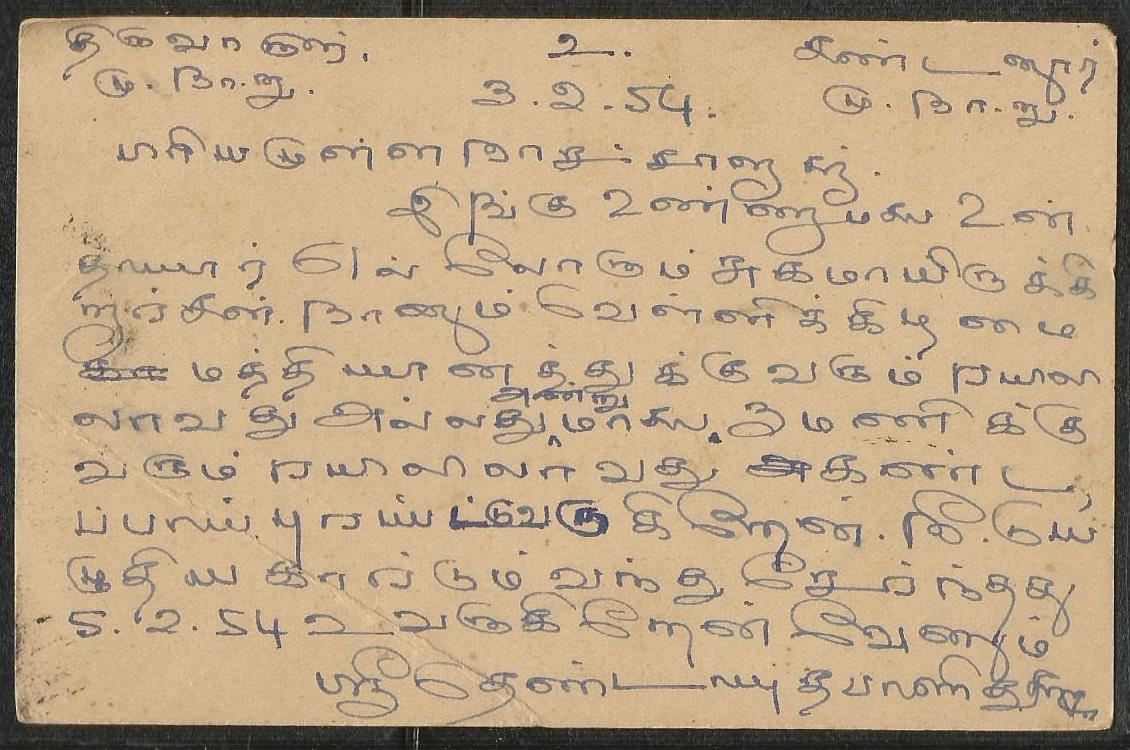 திருவாரூர். உ. கண்டனூர்
மு. நா. று. 3.2.54. மு. நா. று.
பிரியமுள்ள
இங்கு உண்ணாமலை உன்
தாயார் எல்லோரும் சுகமாயிருக்கி
றார்கள். நானும் வெள்ளிக்கிழமை
மத்தியானத்துக்கு வரும் ரயிலி
லாவது அல்லது அன்று மாலை 3 மணிக்கு
வரும் ரயிலிலாவது கண்ட
ப்பாய் புரப்பட்டு வருகிறேன். நீ
எழுதிய கார்டும் வந்து சேர்ந்தது
5.2.54 உ வருகிறேன் வேணும்
ஸ்ரீ தெண்டாயுதபாணி துணை